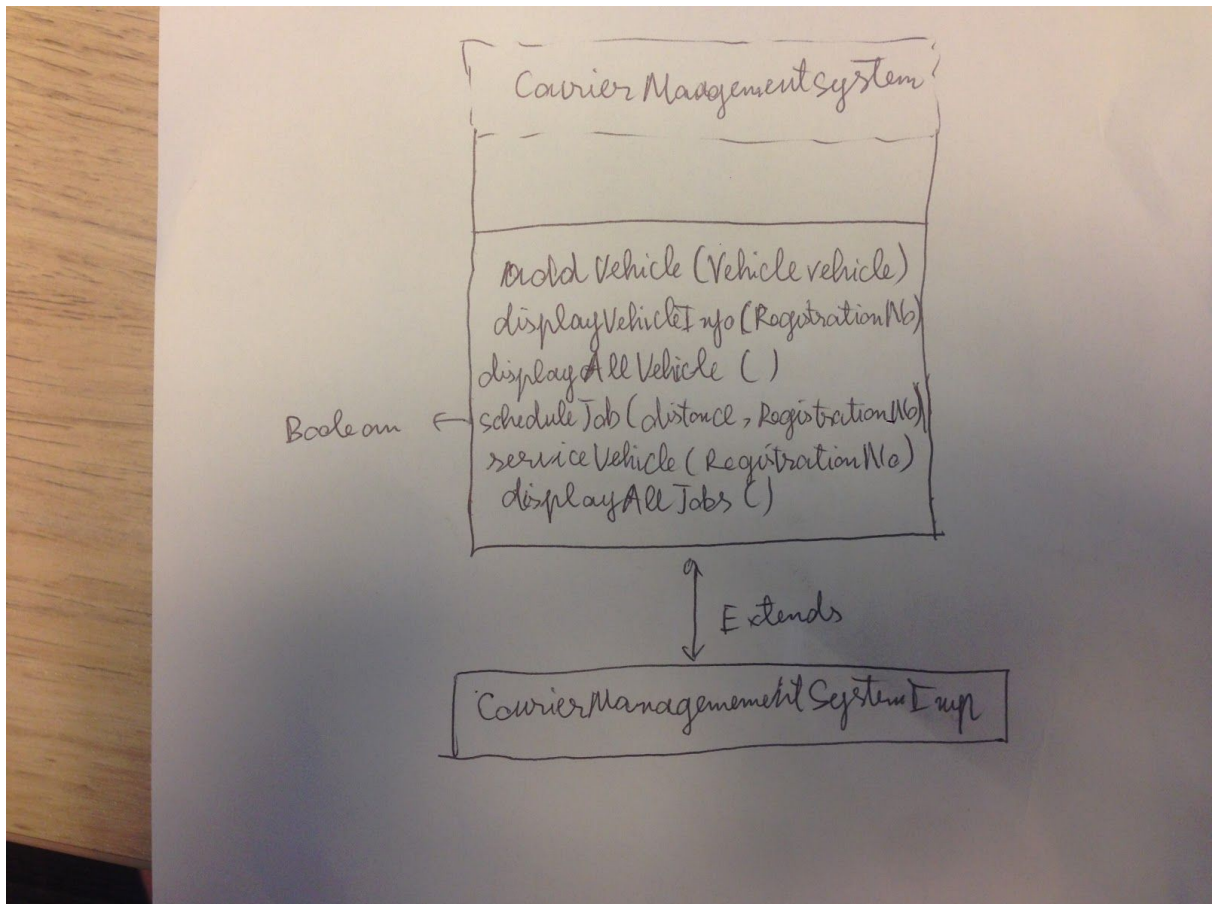 Courier Managementsystem
addVehicle (Vehicle vehicle)
displayVehicleInfo (RegistrationNo)
displayAllVehicle ( )
Boolean ← scheduleJob (distance, RegistrationNo)
serviceVehicle (RegistrationNo)
displayAllJobs ( )
Extends
CourierManagemementSystemImp